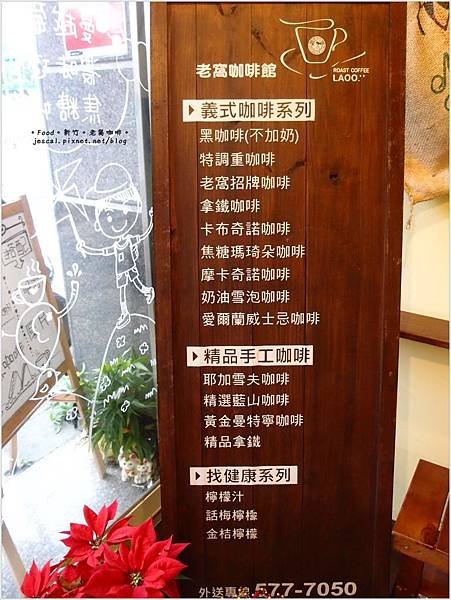 老窩咖啡館
ROAST COFFEE
LAOO.
義式咖啡系列
黑咖啡(不加奶)
特調重咖啡
老窩招牌咖啡
拿鐵咖啡
卡布奇諾咖啡
焦糖瑪琦朵咖啡
摩卡奇諾咖啡
奶油雪泡咖啡
愛爾蘭威士忌咖啡
精品手工咖啡
耶加雪夫咖啡
精選藍山咖啡
黃金曼特寧咖啡
精品拿鐵
找健康系列
檸檬汁
話梅檸檬
金桔檸檬
外送專線 577-7050
•Food•新竹•老窩咖啡•
jescal.pixnet.net/blog
焦糖